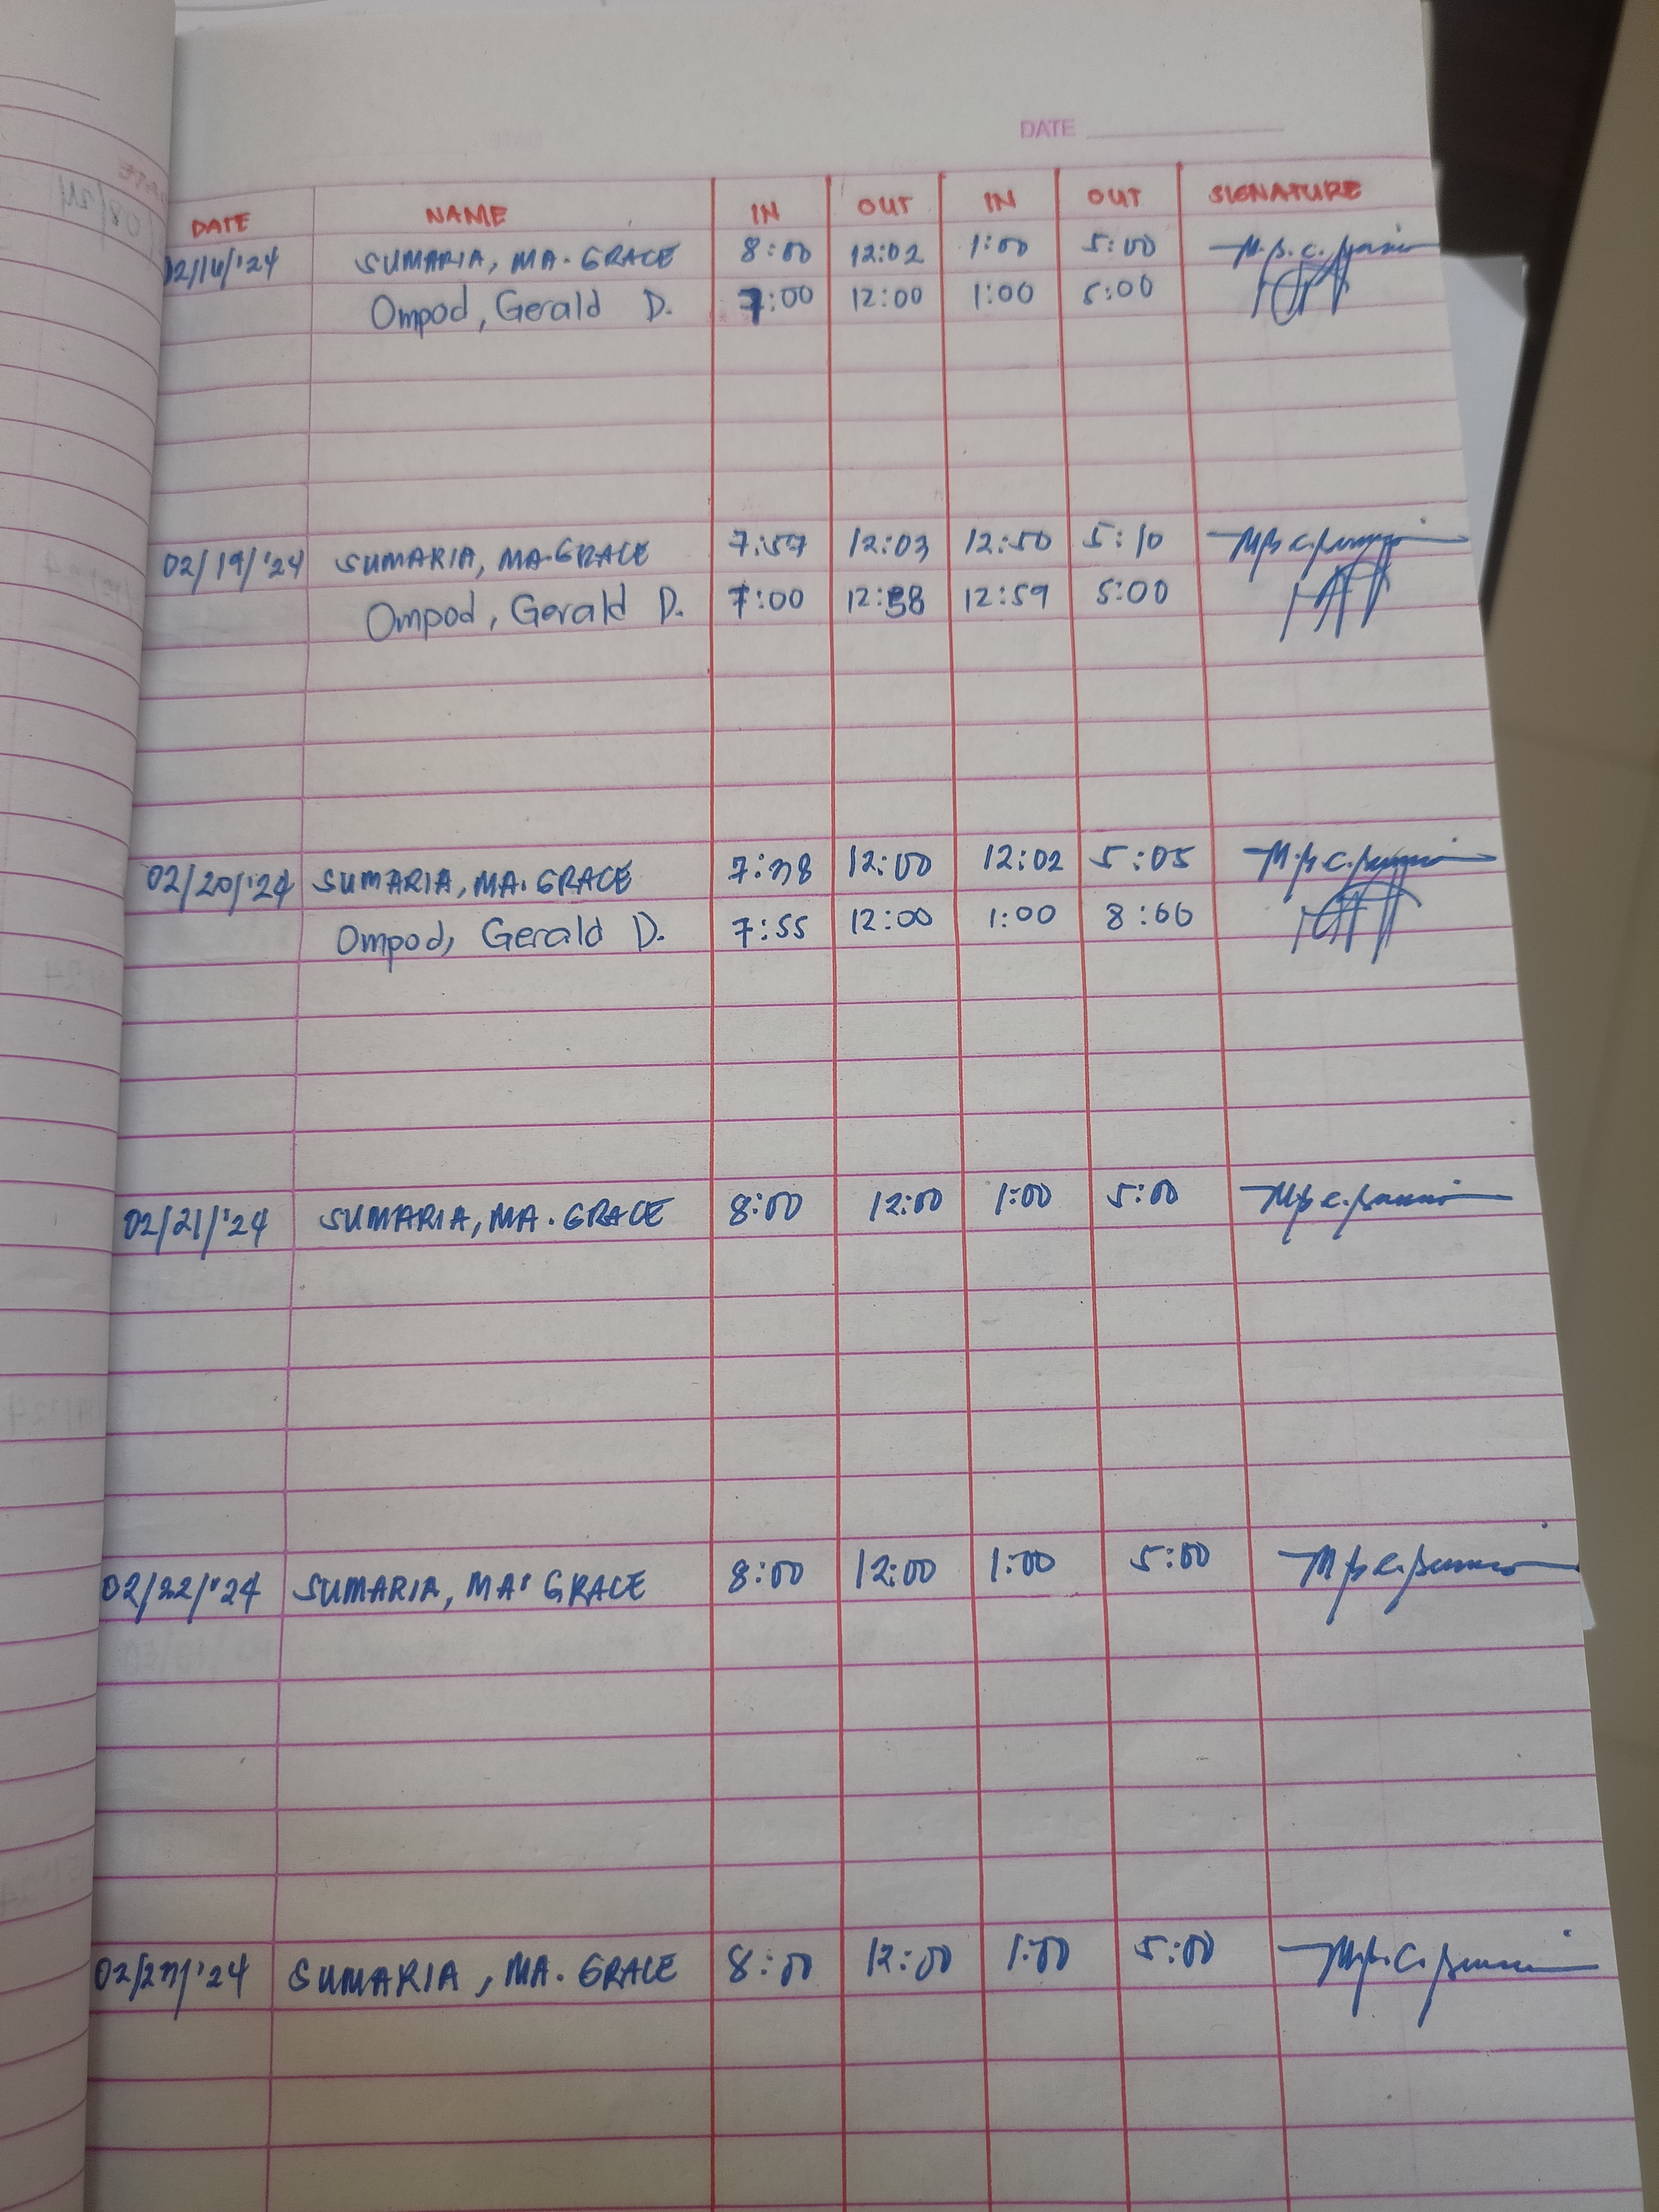 DATE
DATE NAME IN OUT IN OUT SIGNATURE
02/16/'24 SUMARIA, MA. GRACE 8:00 12:02 1:00 5:00
Ompod, Gerald D. 7:00 12:00 1:00 5:00
02/19/'24 SUMARIA, MA. GRACE 7:57 12:03 12:50 5:10
Ompod, Gerald D. 7:00 12:58 12:59 5:00
02/20/'24 SUMARIA, MA. GRACE 7:38 12:00 12:02 5:05
Ompod, Gerald D. 7:55 12:00 1:00 8:00
02/21/'24 SUMARIA, MA. GRACE 8:00 12:00 1:00 5:00
02/22/'24 SUMARIA, MA. GRACE 8:00 12:00 1:00 5:00
SUMARIA, MA. GRACE 8:00 12:00 1:00 5:00